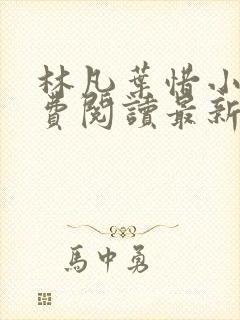 林凡葉惜小
費閱讀最新
馬中勇